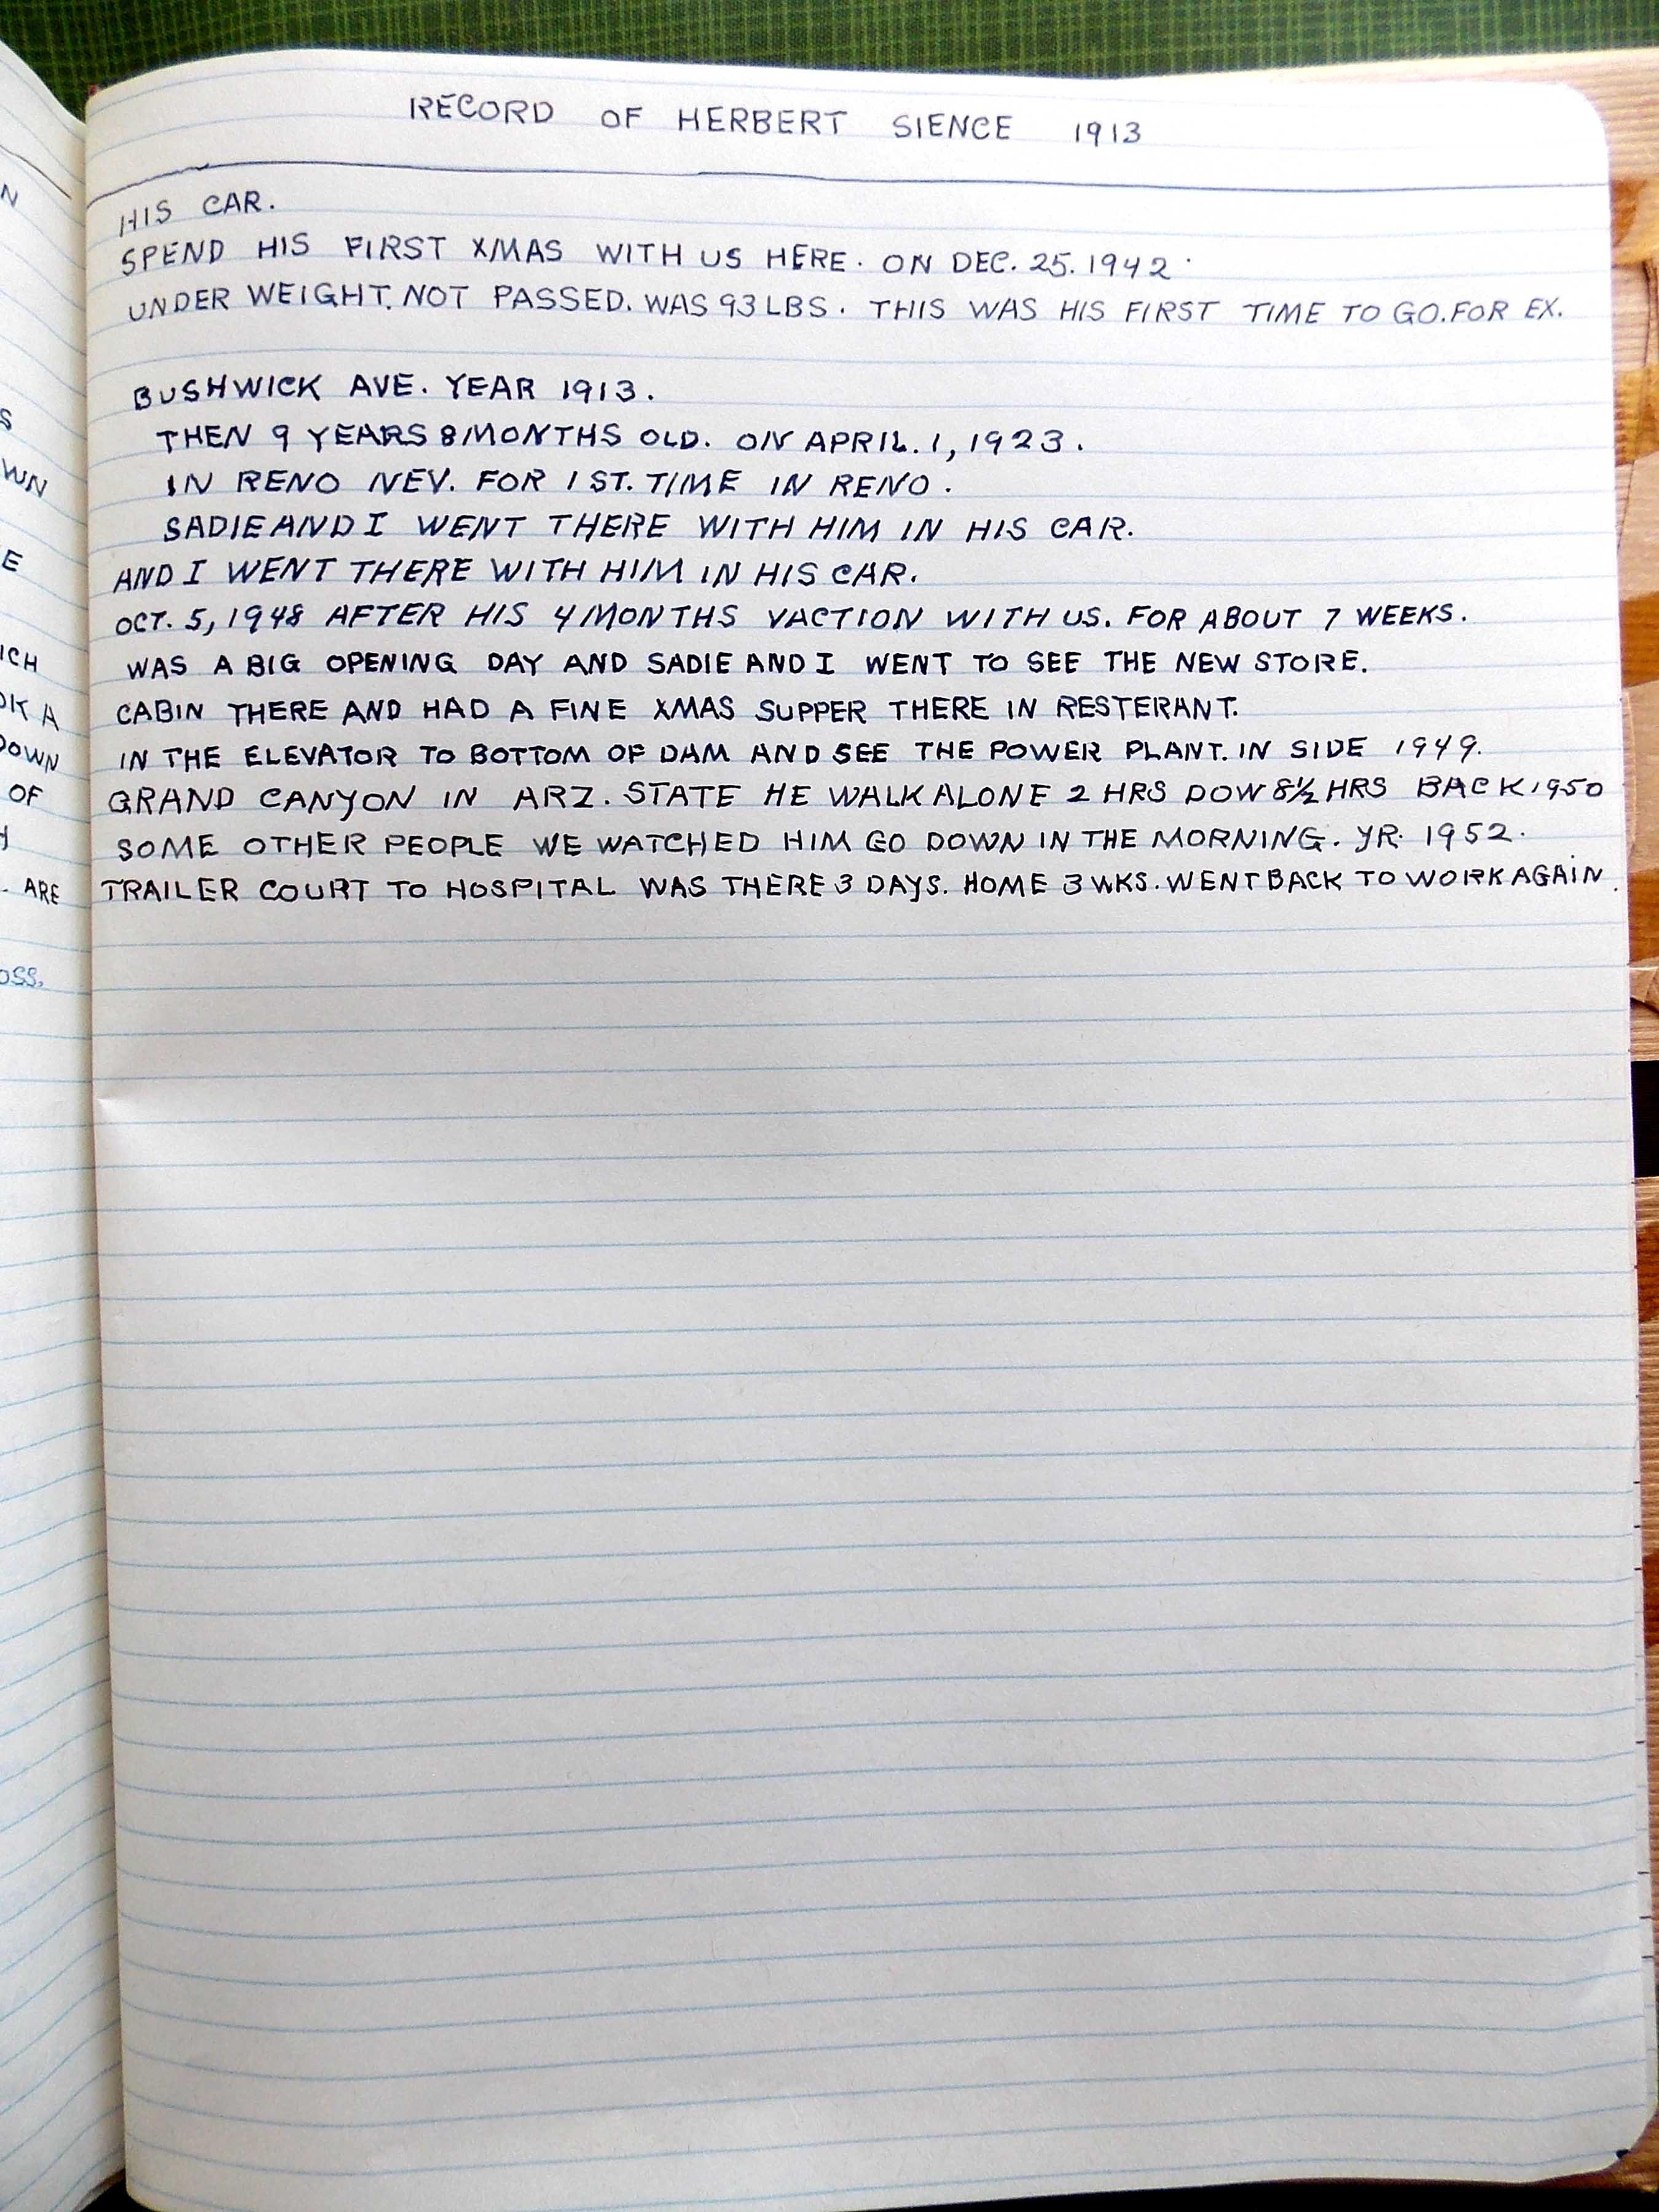 RECORD OF HERBERT SIENCE 1913
HIS CAR.
SPEND HIS FIRST XMAS WITH US HERE. ON DEC. 25. 1942.
UNDER WEIGHT. NOT PASSED. WAS 93 LBS. THIS WAS HIS FIRST TIME TO GO. FOR EX.
BUSHWICK AVE. YEAR 1913.
THEN 9 YEARS 8 MONTHS OLD. ON APRIL. 1, 1923.
IN RENO NEV. FOR 1 ST. TIME IN RENO.
SADIE AND I WENT THERE WITH HIM IN HIS CAR.
AND I WENT THERE WITH HIM IN HIS CAR.
OCT. 5, 1948 AFTER HIS 4 MONTHS VACTION WITH US. FOR ABOUT 7 WEEKS.
WAS A BIG OPENING DAY AND SADIE AND I WENT TO SEE THE NEW STORE.
CABIN THERE AND HAD A FINE XMAS SUPPER THERE IN RESTERANT.
IN THE ELEVATOR TO BOTTOM OF DAM AND SEE THE POWER PLANT. IN SIDE 1949.
GRAND CANYON IN ARZ. STATE HE WALK ALONE 2 HRS DOW 8½ HRS BACK 1950
SOME OTHER PEOPLE WE WATCHED HIM GO DOWN IN THE MORNING. YR. 1952.
TRAILER COURT TO HOSPITAL WAS THERE 3 DAYS. HOME 3 WKS. WENT BACK TO WORK AGAIN.